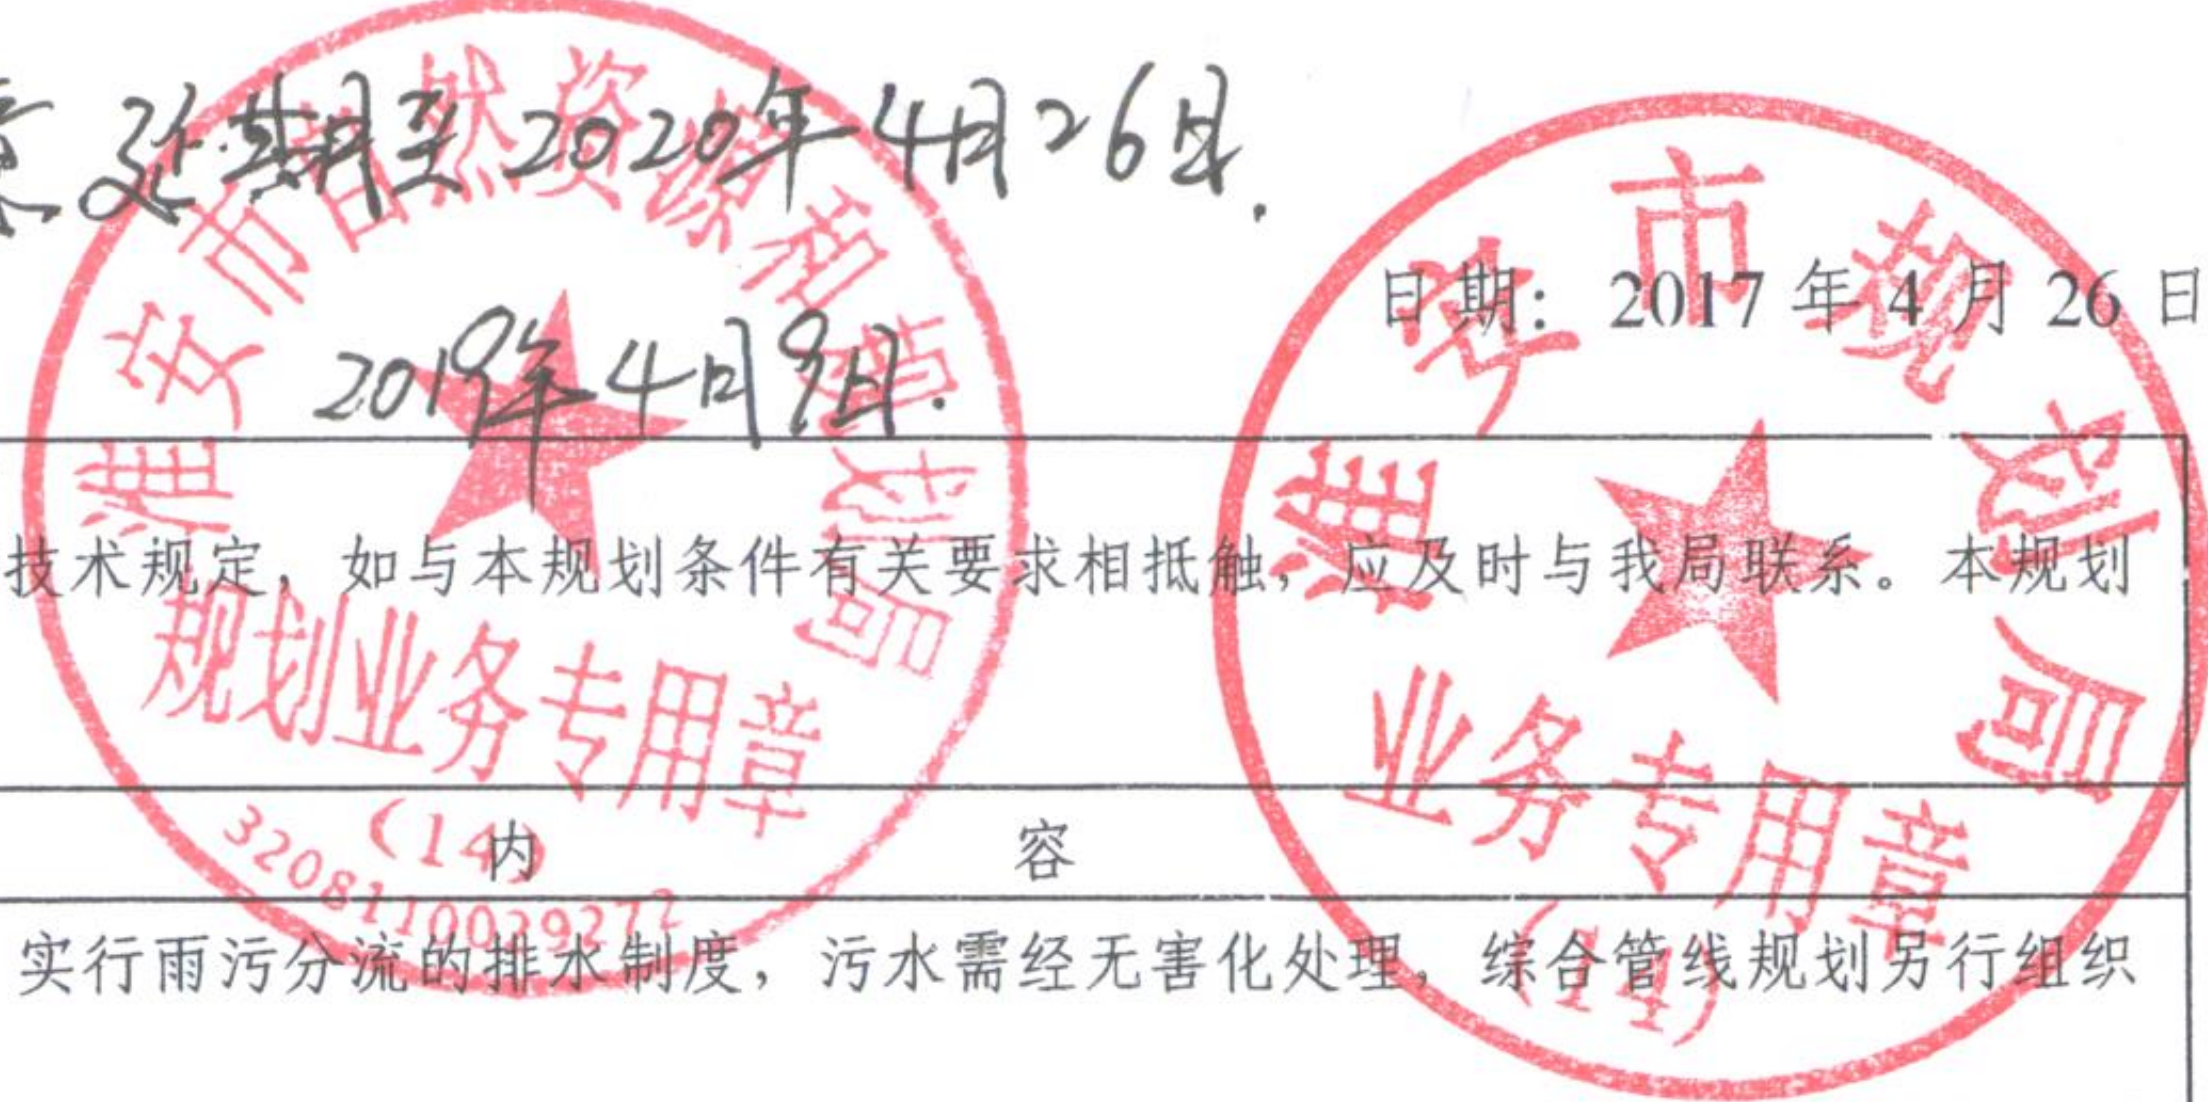 延期至2020年4月26日.
日期: 2017年4月26日
2019年4月9日.
淮安市自然资源和规划局
规划业务专用章
(14)
3208110029272
淮安市规划局
业务专用章
(14)
技术规定，如与本规划条件有关要求相抵触，应及时与我局联系。本规划
内 容
实行雨污分流的排水制度，污水需经无害化处理，综合管线规划另行组织